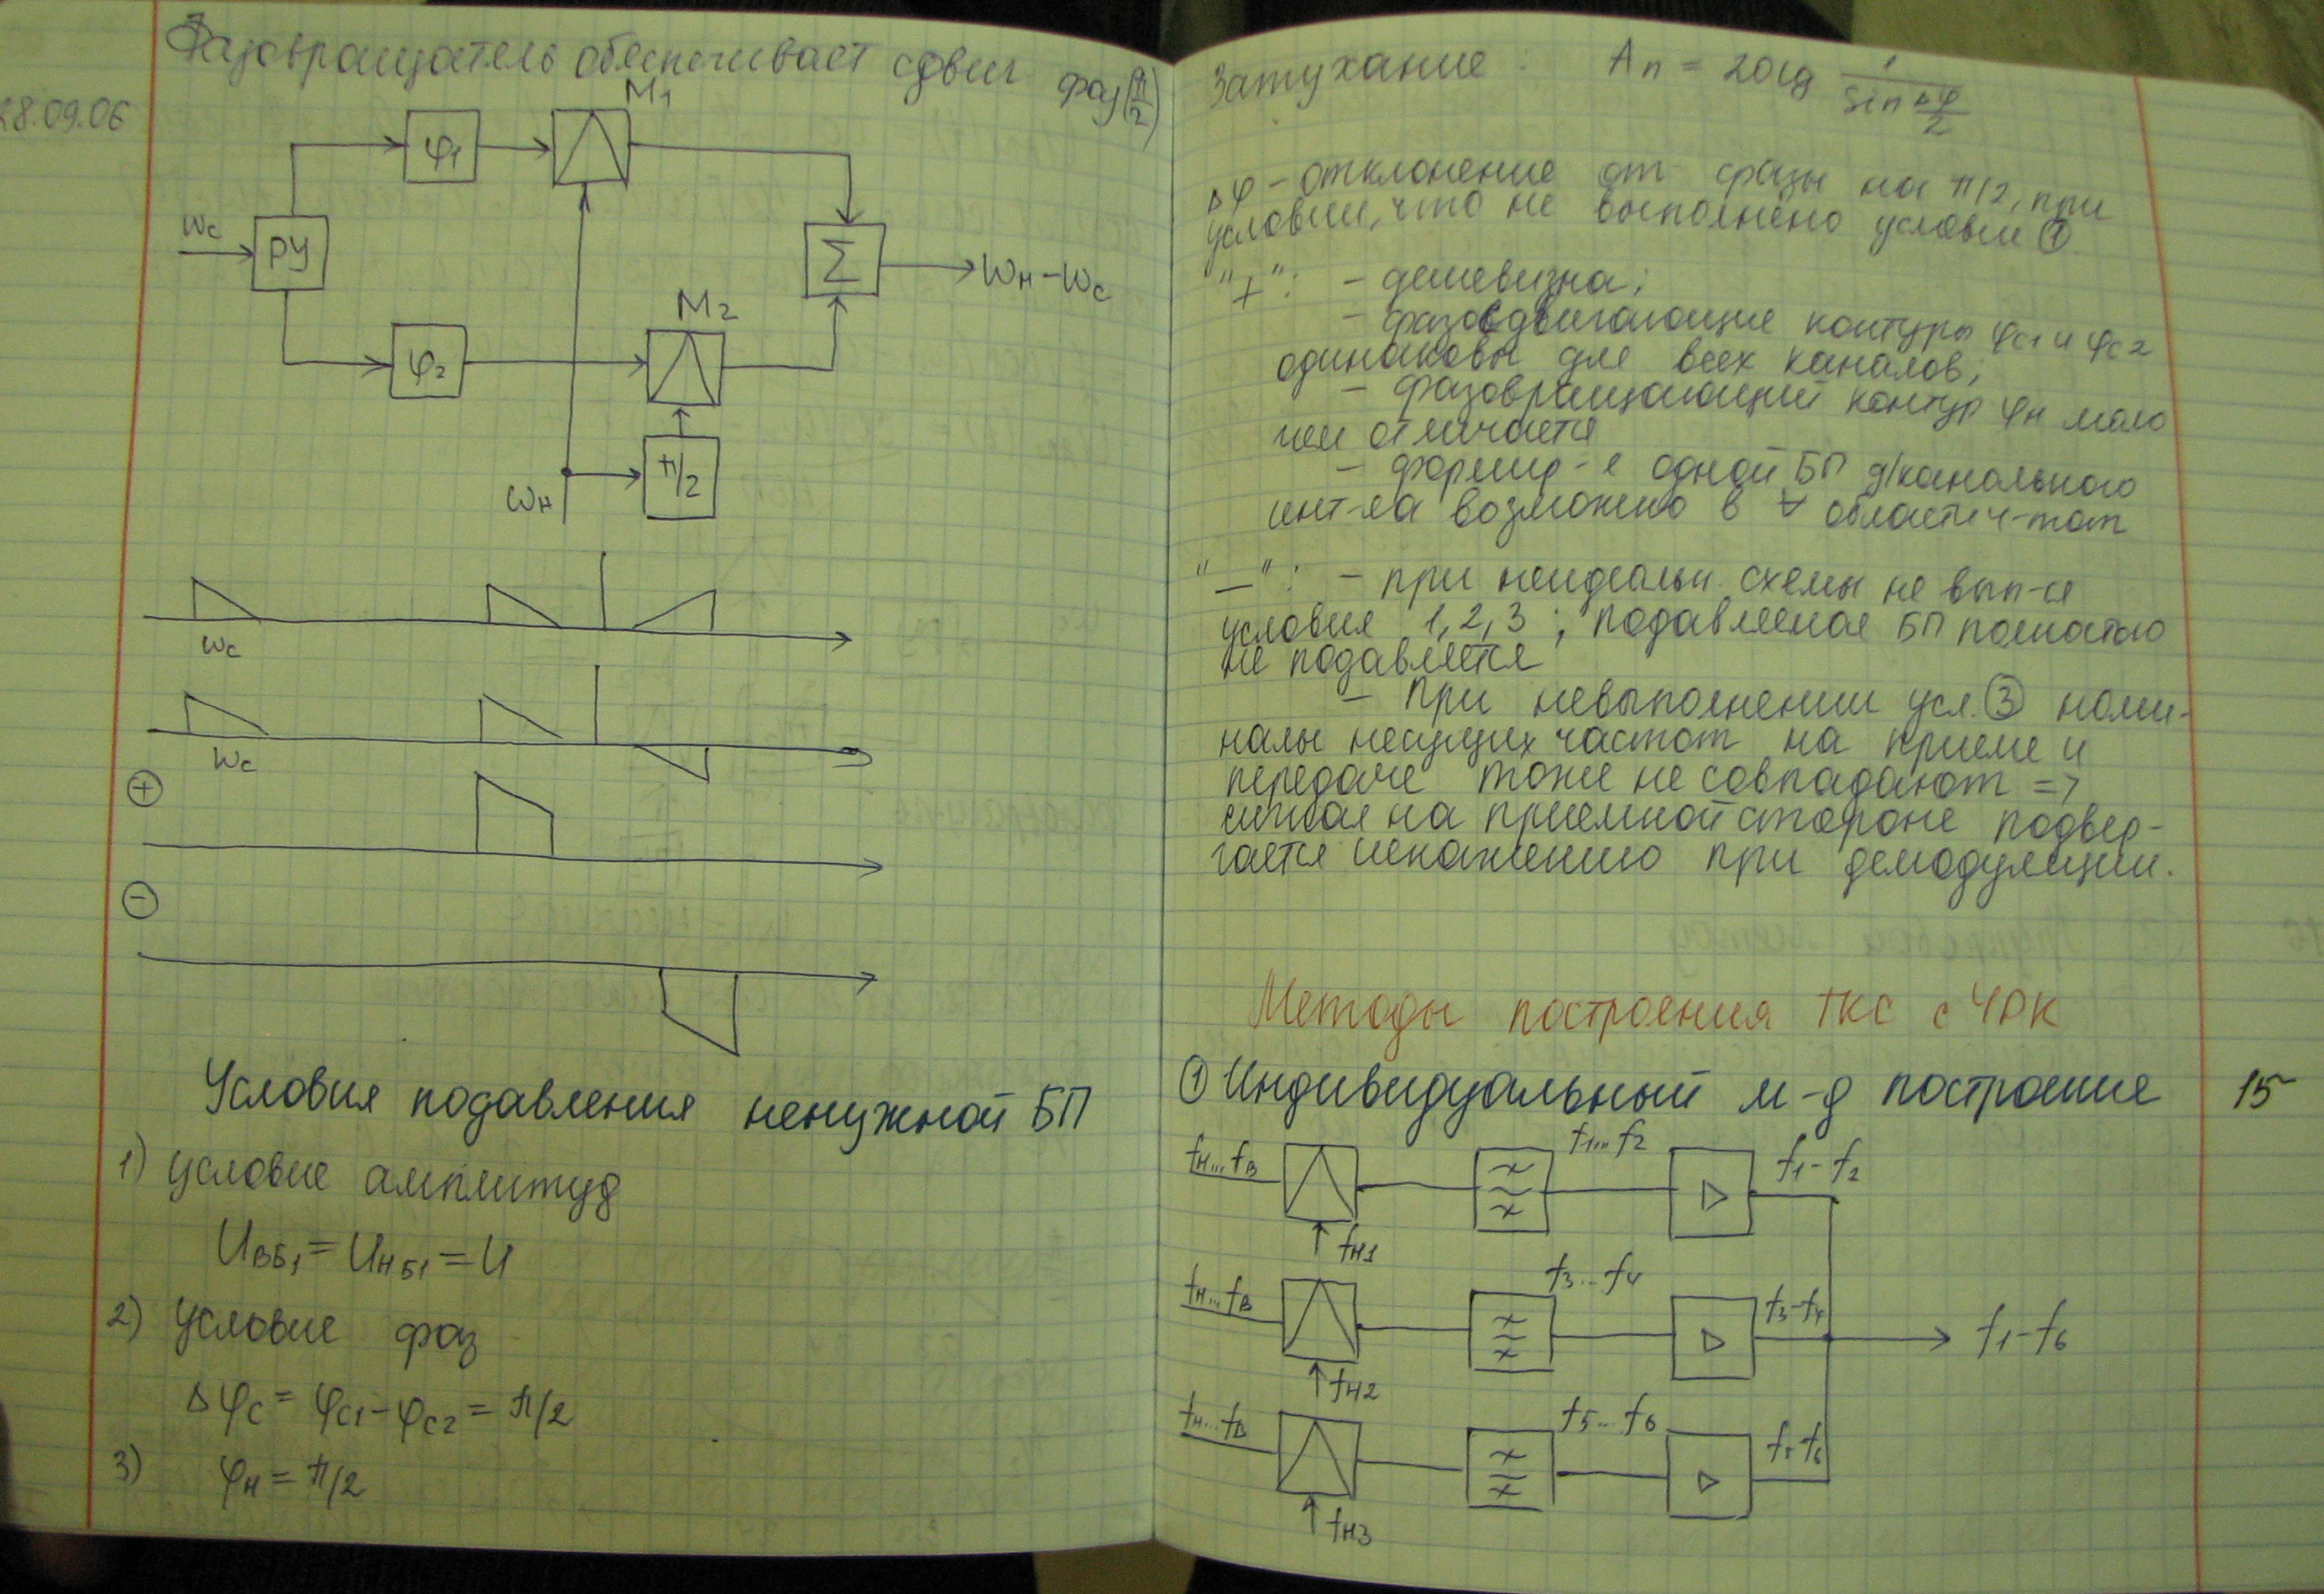 Фазовращатель обеспечивает сдвиг фаз (π/2)
28.09.06
M1
φ1
ωc
РУ
Σ
ωн-ωc
M2
φ2
π/2
ωн
ωc
ωc
+
−
Условия подавления ненужной БП
1) условие амплитуд
UВБ1 = UНБ1 = U
2) условие фаз
Δφc = φc1 - φc2 = π/2
3) φн = π/2
Затухание: Aп = 20lg 1/(sin Δφ/2)
Δφ - отклонение от фазы на π/2, при
условии, что не выполнено условие ①
"+": - дешевизна;
- фазосдвигающие контуры φc1 и φc2
одинаковы для всех каналов;
- фазовращающий контур φн мало
чем отличается
- формир-е одной БП д/канального
инт-ла возможно в ∀ области ч-тот
"—": - при неидеальн. схемы не вып-ся
условия 1, 2, 3; подавляемая БП полностью
не подавляется
- При невыполнении усл. ③ номи-
налы несущих частот на приеме и
передаче тоже не совпадают =>
сигнал на приемной стороне подвер-
гается искажению при демодуляции.
Методы построения ТКС с ЧРК
① Индивидуальный м-д построение
15
fн...fв
f1...f2
f1-f2
fн1
fн...fв
f3...f4
f3-f4
f1-f6
fн2
fн...fв
f5...f6
f5-f6
fн3